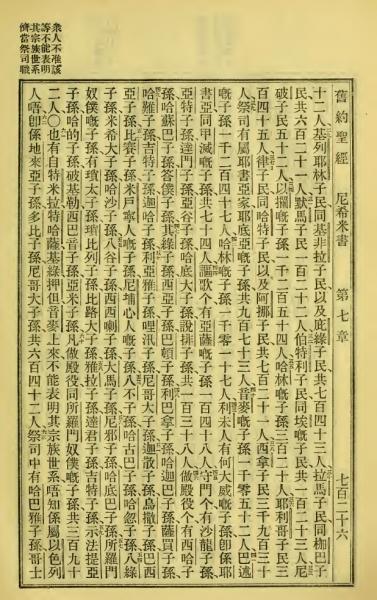 舊約聖經 尼希米書 第七章 七百二十六
十二人基列耶林子民同基非拉子民以及庇綠子民共七百四十三人拉馬子民同枷巴子
民共六百二十一人默馬子民一百二十二人伯特利子民同埃嘅子民共一百二十三人尼
破子民五十二人以攔嘅子孫一千二百五十四人哈林嘅子孫三百二十人耶利哥子民三
百四十五人律子民同哈特子民以及阿挪子民共七百二十一人西拿子民三千九百三十
人祭司有屬耶書亞家耶底亞嘅子孫共九百七十三人音麥嘅子孫一千零五十二人巴述
嘅子孫一千二百四十七人哈林嘅子孫一千零一十七人利未人有何大威嘅子孫卽係耶
書亞同甲滅嘅子孫共七十四人謳歌个有亞薩嘅子孫一百四十八人守門个有沙龍子孫
亞特子孫達們子孫亞谷子孫哈底大子孫說排子孫共一百三十八人做殿役个有西哈子
孫哈蘇巴子孫答僕子孫其綠子孫西亞子孫巴頓子孫利巴拿子孫哈迦巴子孫薩買子孫
哈難子孫吉特子孫迦哈子孫利亞雅子孫哩汛子孫尼哥大子孫迦散子孫烏撒子孫巴西
亞子孫比賽子孫米戶寧人嘅子孫尼埔心人嘅子孫八不子孫哈古巴子孫哈忽子孫八綠
子孫米希大子孫哈沙子孫八谷子孫西西喇子孫大馬子孫尼邪子孫哈底巴子孫所羅門
奴僕嘅子孫有瑣太子孫瑣比列子孫比路大子孫雅拉子孫達君子孫吉特子孫示法提亞
子孫哈的子孫破基勒西巴音子孫亞米子孫凡做殿役同所羅門奴僕嘅子孫共三百九十
二人〇也有自特米拉特哈薩基綠押但音麥上來不能表明其宗族世系唔知係屬以色列
人唔卽係地來亞子孫多比子孫尼哥大子孫共六百四十二人祭司中有哈巴雅子孫哥士
衆人不准該
等不能表明
其宗族世系
當祭司職